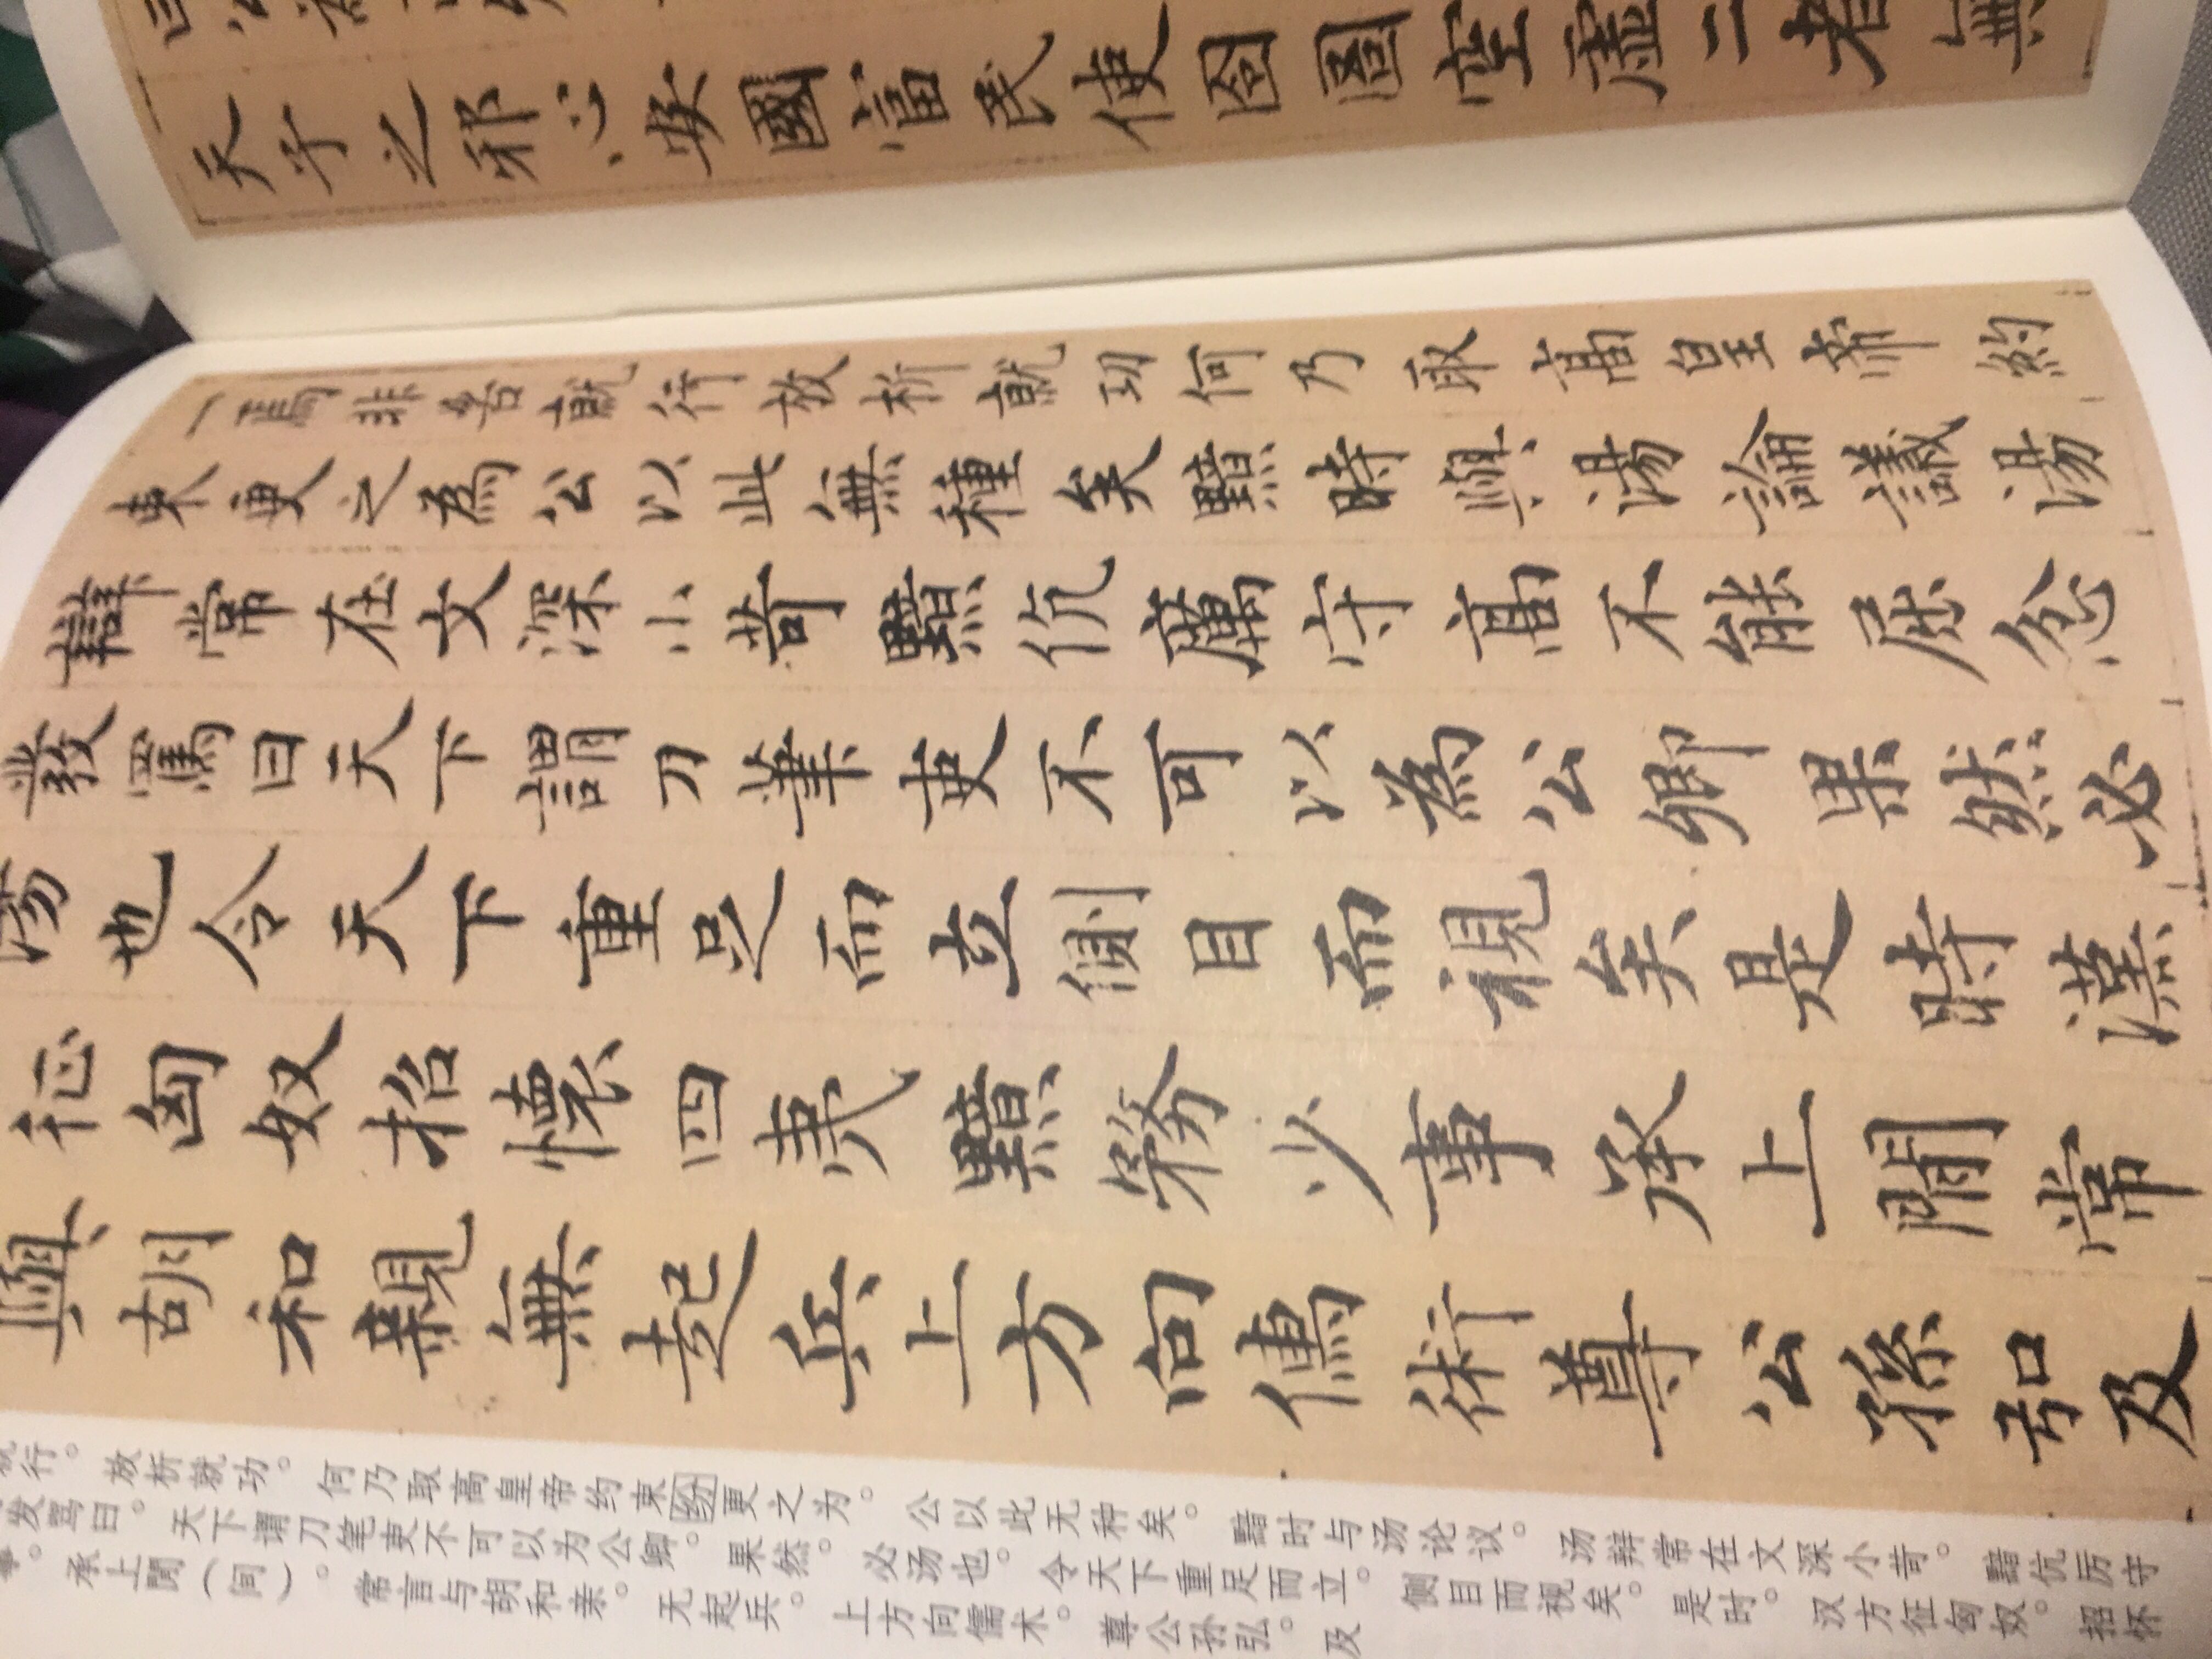 天子之邪心安國富民使囹圄空虛二者無
一焉非苦就行放析就功何乃取高皇帝約
束更之為公以此無種矣黯時與湯論議湯
辯常在文深小苛黯伉厲守高不能屈忿
發罵曰天下謂刀筆吏不可以為公卿果然必
湯也令天下重足而立側目而視矣是時漢
征匈奴招懷四夷黯務少事承上閒常
與胡和親無起兵上方向儒術尊公孫弘及
行。放析就功。何乃取高皇帝约束纷更之为。公以此无种矣。黯时与汤论议。汤辩常在文深小苛。黯伉厉守
发骂曰。天下谓刀笔吏不可以为公卿。果然。必汤也。令天下重足而立。侧目而视矣。是时。汉方征匈奴。招怀
事。承上閒（间）。常言与胡和亲。无起兵。上方向儒术。尊公孙弘。及